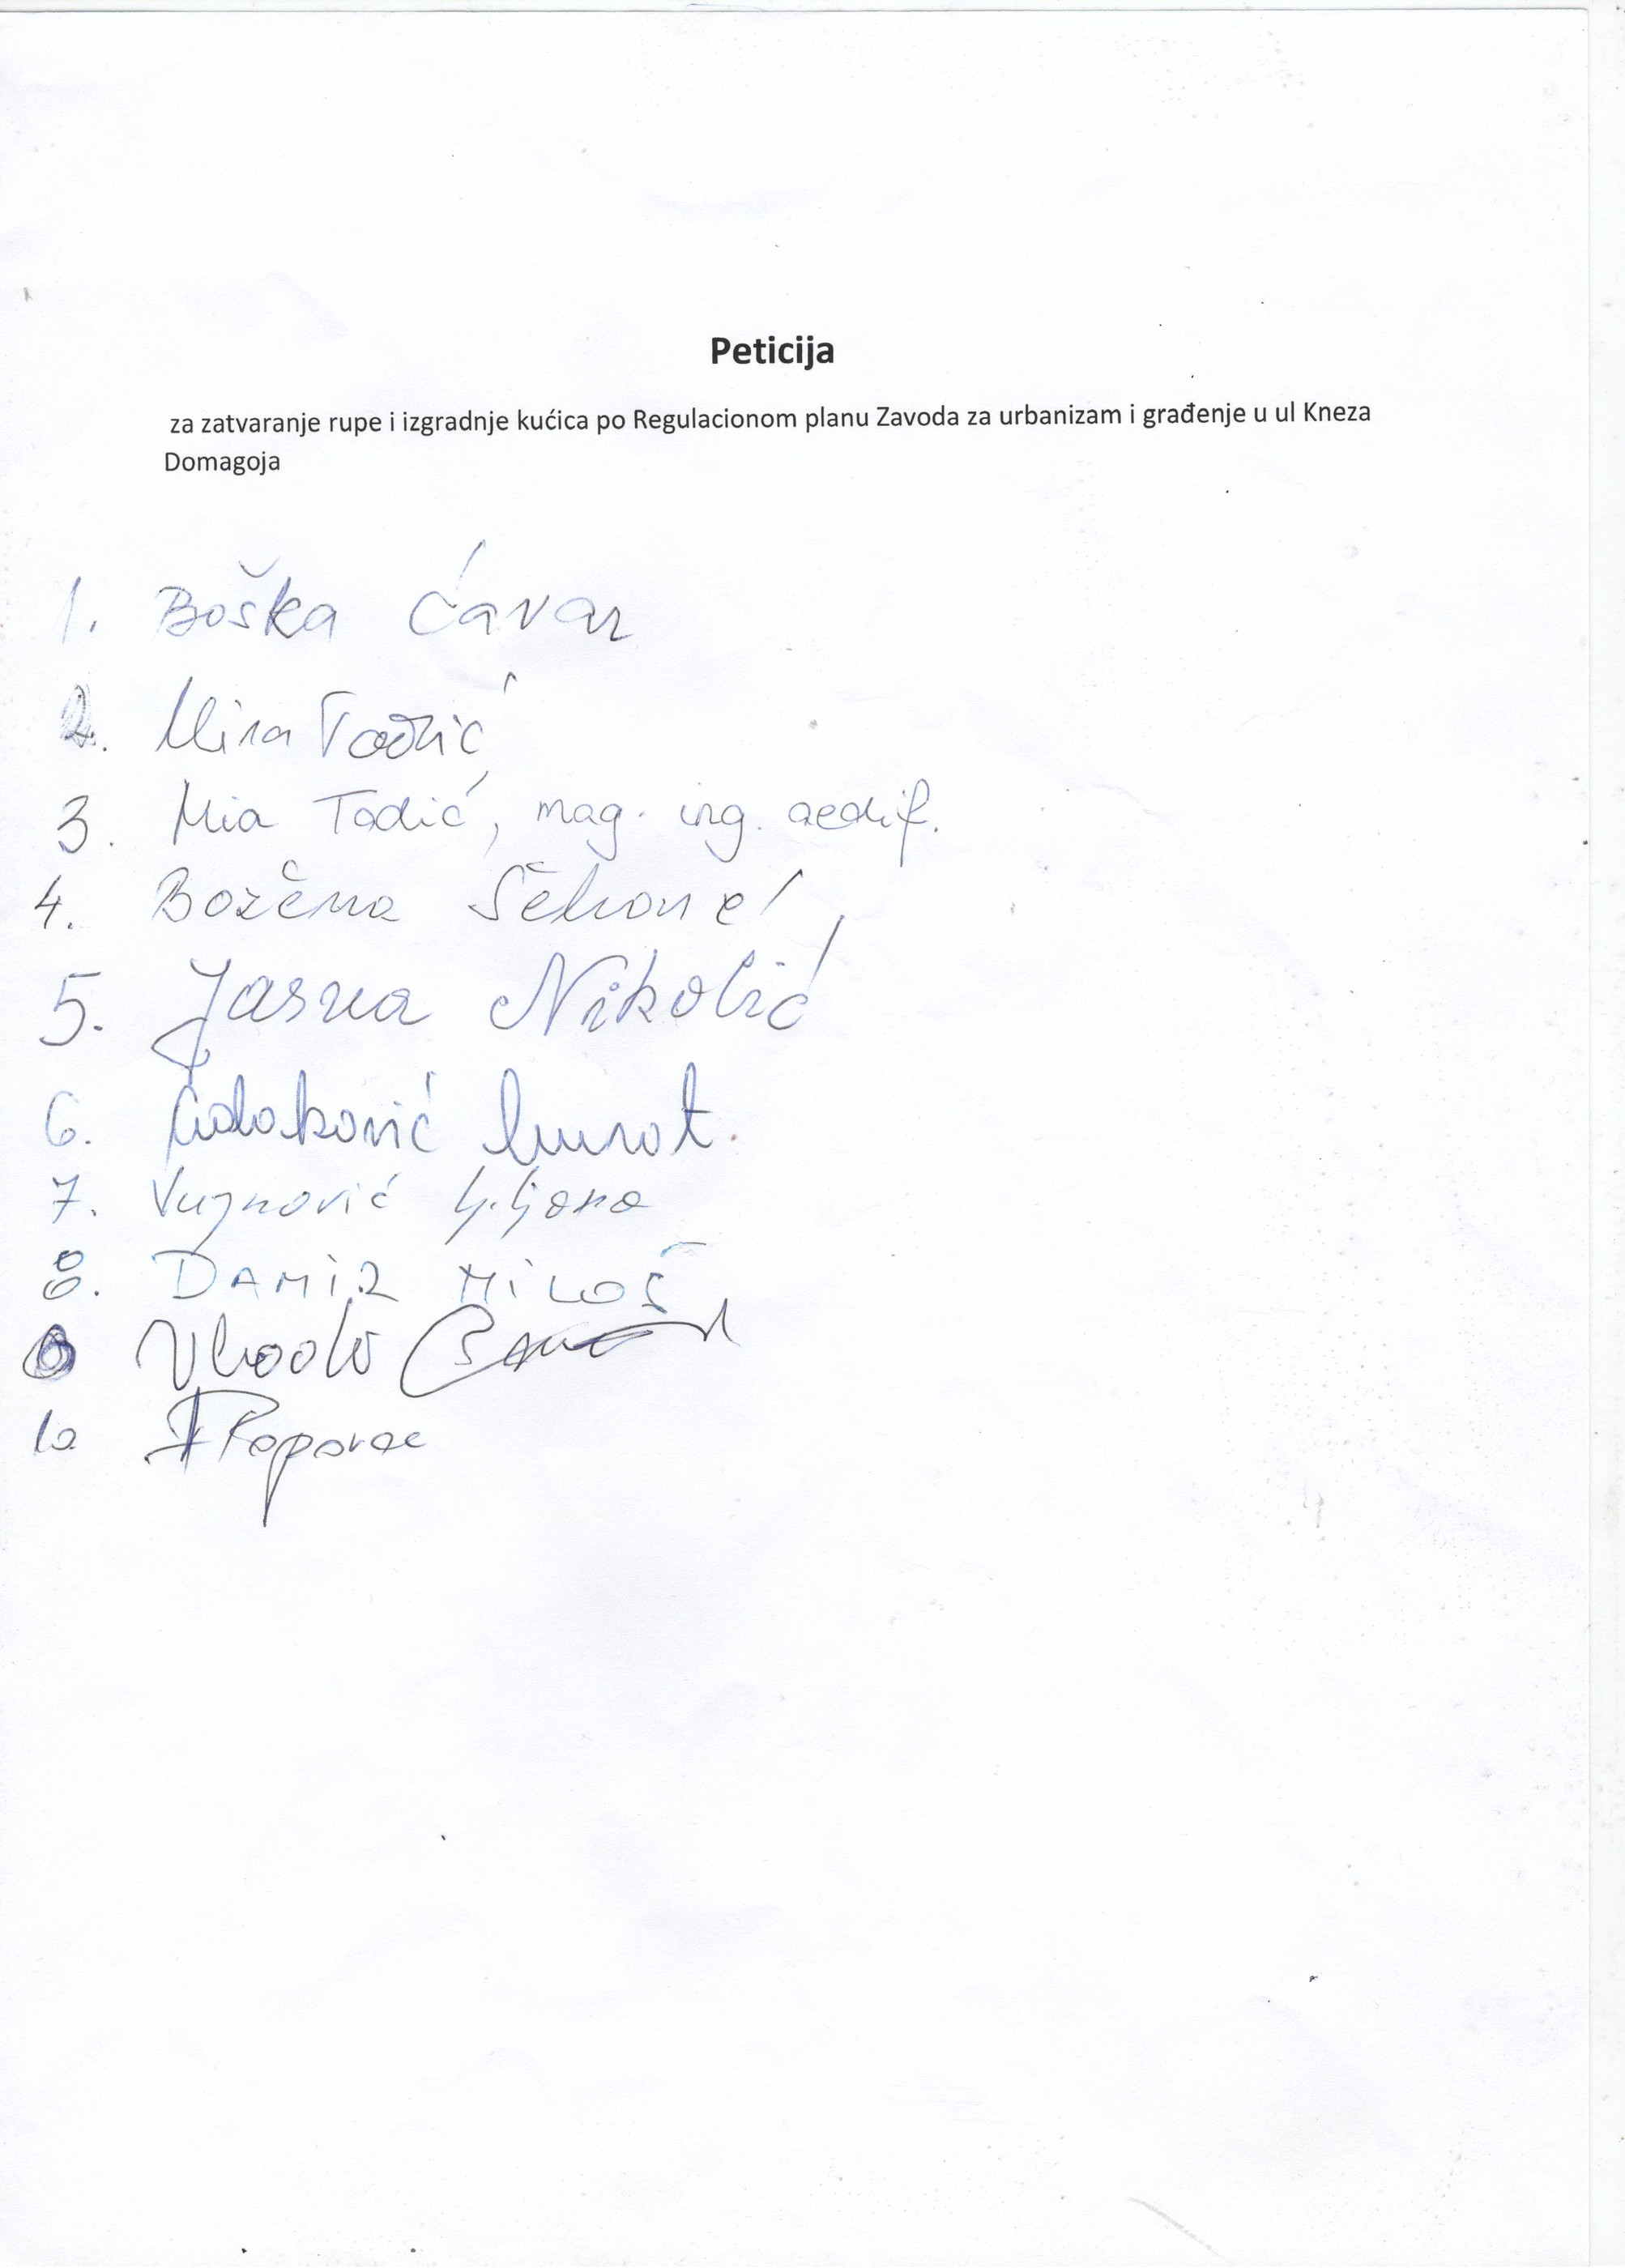 Peticija
za zatvaranje rupe i izgradnje kućica po Regulacionom planu Zavoda za urbanizam i građenje u ul Kneza
Domagoja
1. Boška Ćavar
2. Mira Tadić
3. Mia Tadić, mag. ing. aedif.
4. Božena
5. Jasna Nikolić
6.
7. Vujnović Ljiljana
8. DAMIR MILOŠ
Vlado
10 Popovac